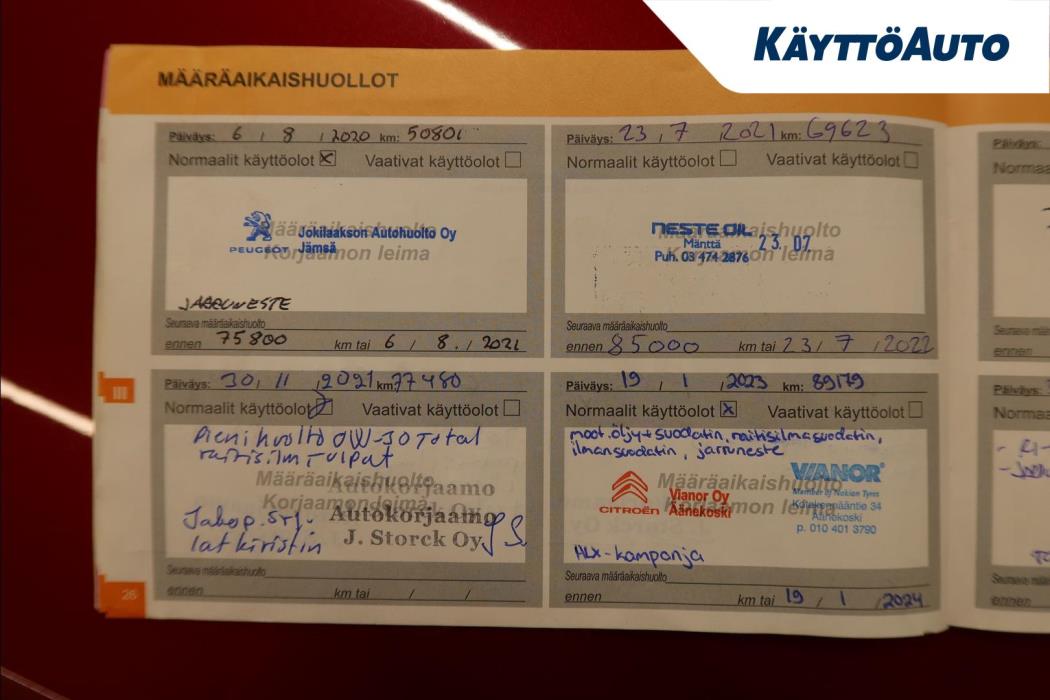 KÄYTTÖAUTO
MÄÄRÄAIKAISHUOLLOT
Päiväys: 6 / 8 / 2020 km: 50801
Normaalit käyttöolot ☒ Vaativat käyttöolot ☐
Määräaikaishuolto
Korjaamon leima
PEUGEOT
Jokilaakson Autohuolto Oy
Jämsä
JARRUNESTE
Seuraava määräaikaishuolto
ennen 75800 km tai 6 / 8. / 2021
Päiväys: 23 / 7 / 2021 km: 69623
Normaalit käyttöolot ☐ Vaativat käyttöolot ☐
Määräaikaishuolto
Korjaamon leima
NESTE OIL
Mänttä 23.07.
Puh. 03 474 2876
Seuraava määräaikaishuolto
ennen 85000 km tai 23 / 7 / 2022
III
Päiväys: 30 / 11 / 2021 km 77480
Normaalit käyttöolot ☑ Vaativat käyttöolot ☐
Pieni huolto 0W-30 Total
raitisilm tulpat
Määräaikaishuolto
Korjaamon leima
Autokorjaamo
Autokorjaamo
J. Storck Oy
Jakop.
Seuraava määräaikaishuolto
ennen km tai / /
Päiväys: 19 / 1 / 2023 km: 89179
Normaalit käyttöolot ☒ Vaativat käyttöolot ☐
moot.öljy+suodatin, raitisilmasuodatin,
ilmansuodatin, jarruneste
Määräaikaishuolto
Korjaamon leima
CITROËN
Vianor Oy
Äänekoski
VIANOR
Member of Nokian Tyres
Äänekoski
p. 010 401 3790
HLX-kampanja
Seuraava määräaikaishuolto
ennen km tai 19 / 1 / 2024
26
Päiväys:
Norma
Seuraava mää
ennen
Päiväys:
Norma
Seuraava mää
ennen